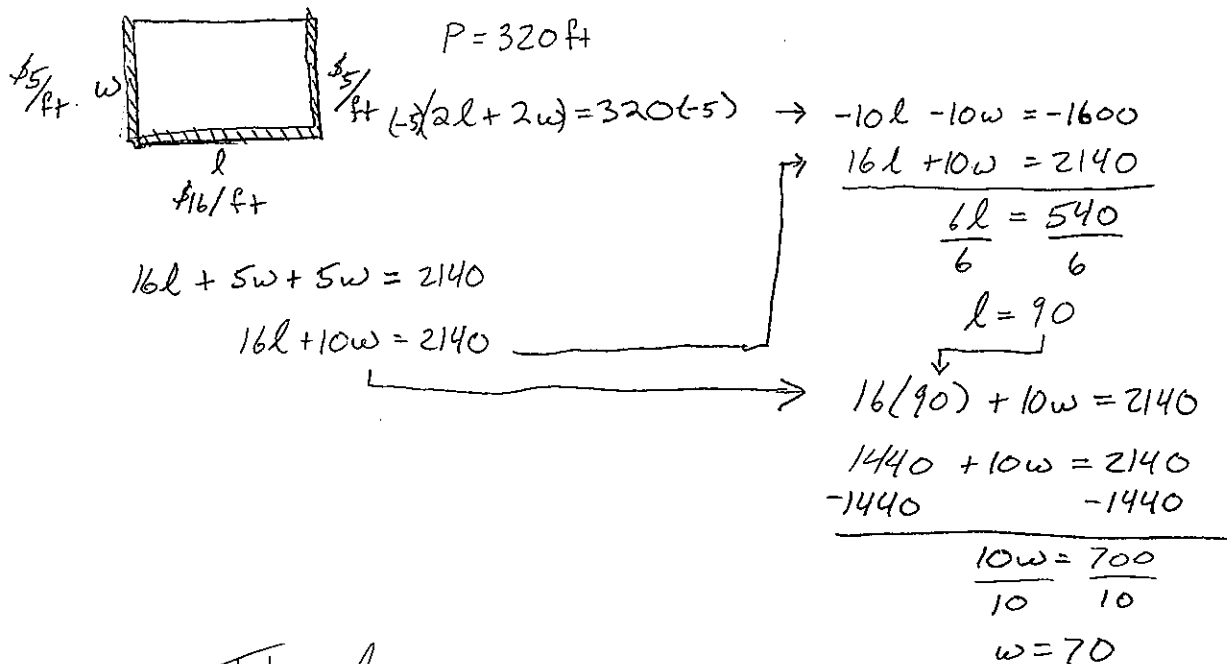 P = 320 ft
$5/ft. w
$5/ft
l
$16/ft
(-5)(2l + 2w) = 320(-5) → -10l - 10w = -1600
16l + 10w = 2140
6l = 540
6 6
l = 90
16l + 5w + 5w = 2140
16l + 10w = 2140
16(90) + 10w = 2140
1440 + 10w = 2140
-1440 -1440
10w = 700
10 10
w = 70